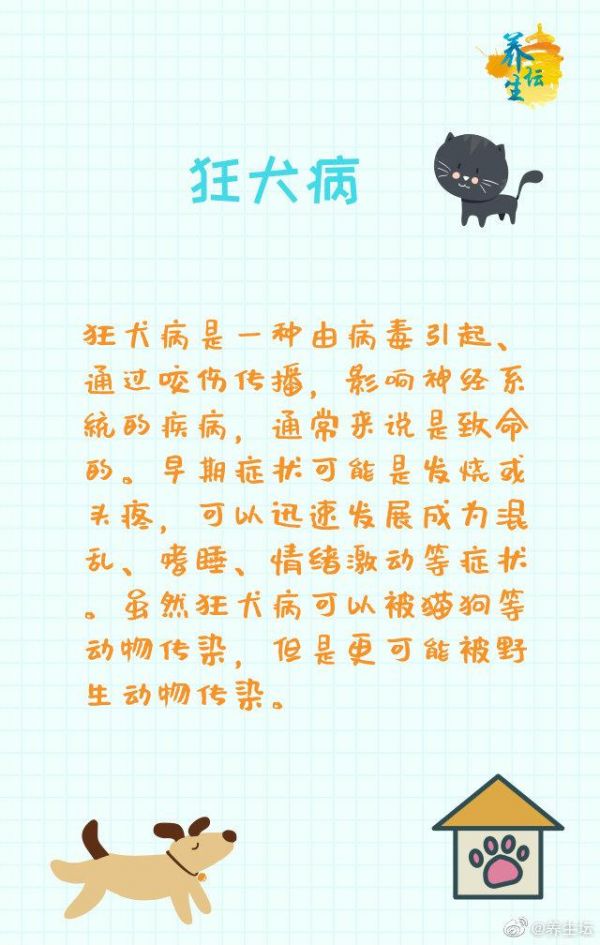 养生坛
狂犬病
狂犬病是一种由病毒引起、
通过咬伤传播，影响神经系
統的疾病，通常来说是致命
的。早期症状可能是发烧或
头疼，可以迅速发展成为混
乱、嗜睡、情绪激动等症状
。虽然狂犬病可以被猫狗等
动物传染，但是更可能被野
生动物传染。
@养生坛